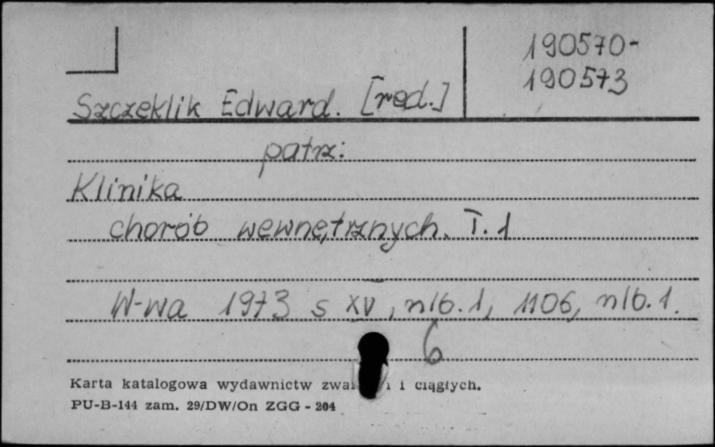 190570-
190573
Szczeklik Edward. [red.]
patrz:
Klinika
chorób wewnętrznych. T. 1
W-wa 1973 s XV, nlb. 1, 1106, nlb. 1.
6
Karta katalogowa wydawnictw i ciągłych.
PU-B-144 zam. 29/DW/On ZGG - 204